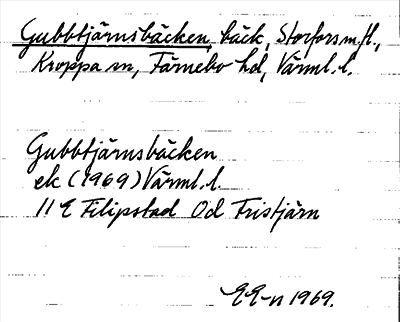 Gubbtjärnsbäcken, bäck, Storfors m.fl.,
Kroppa sn, Färnebo hd, Värml. l.
Gubbtjärnsbäcken
ek (1969) Värml. l.
11 E Filipstad 0d Tristjärn
EE-n 1969.